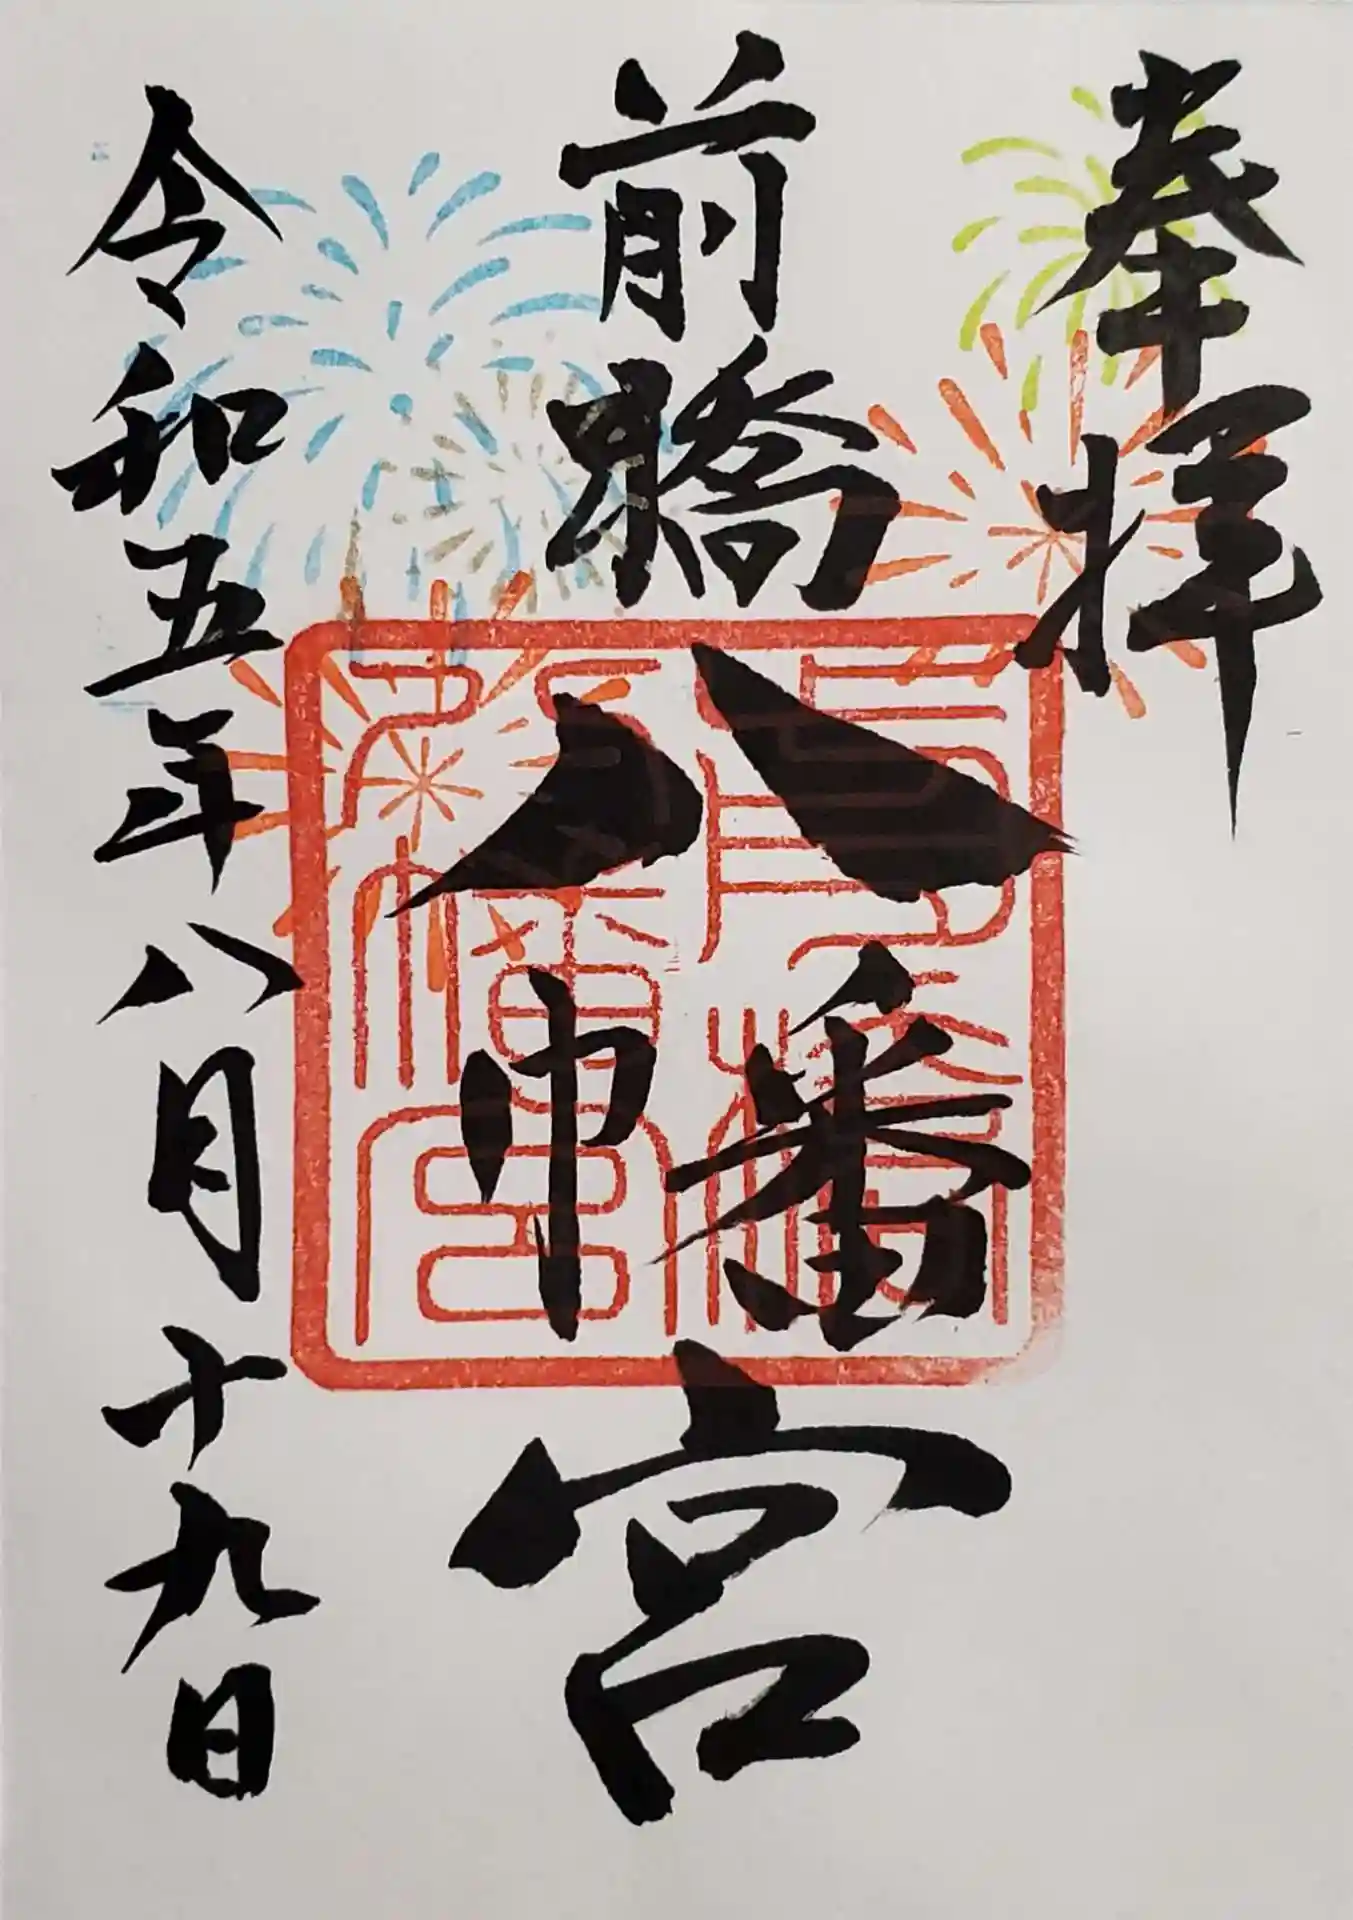 奉拝
前橋八幡宮
令和五年八月十九日
前橋八幡宮